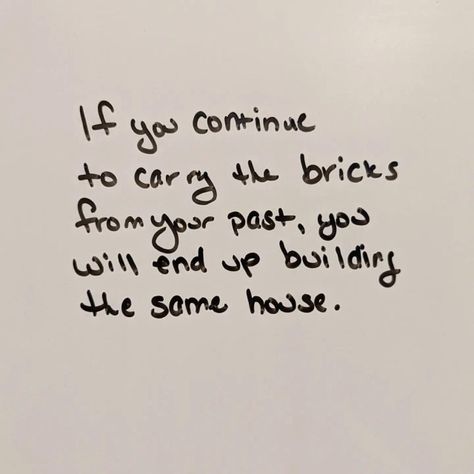 If you continue
to carry the bricks
from your past, you
will end up building
the same house.